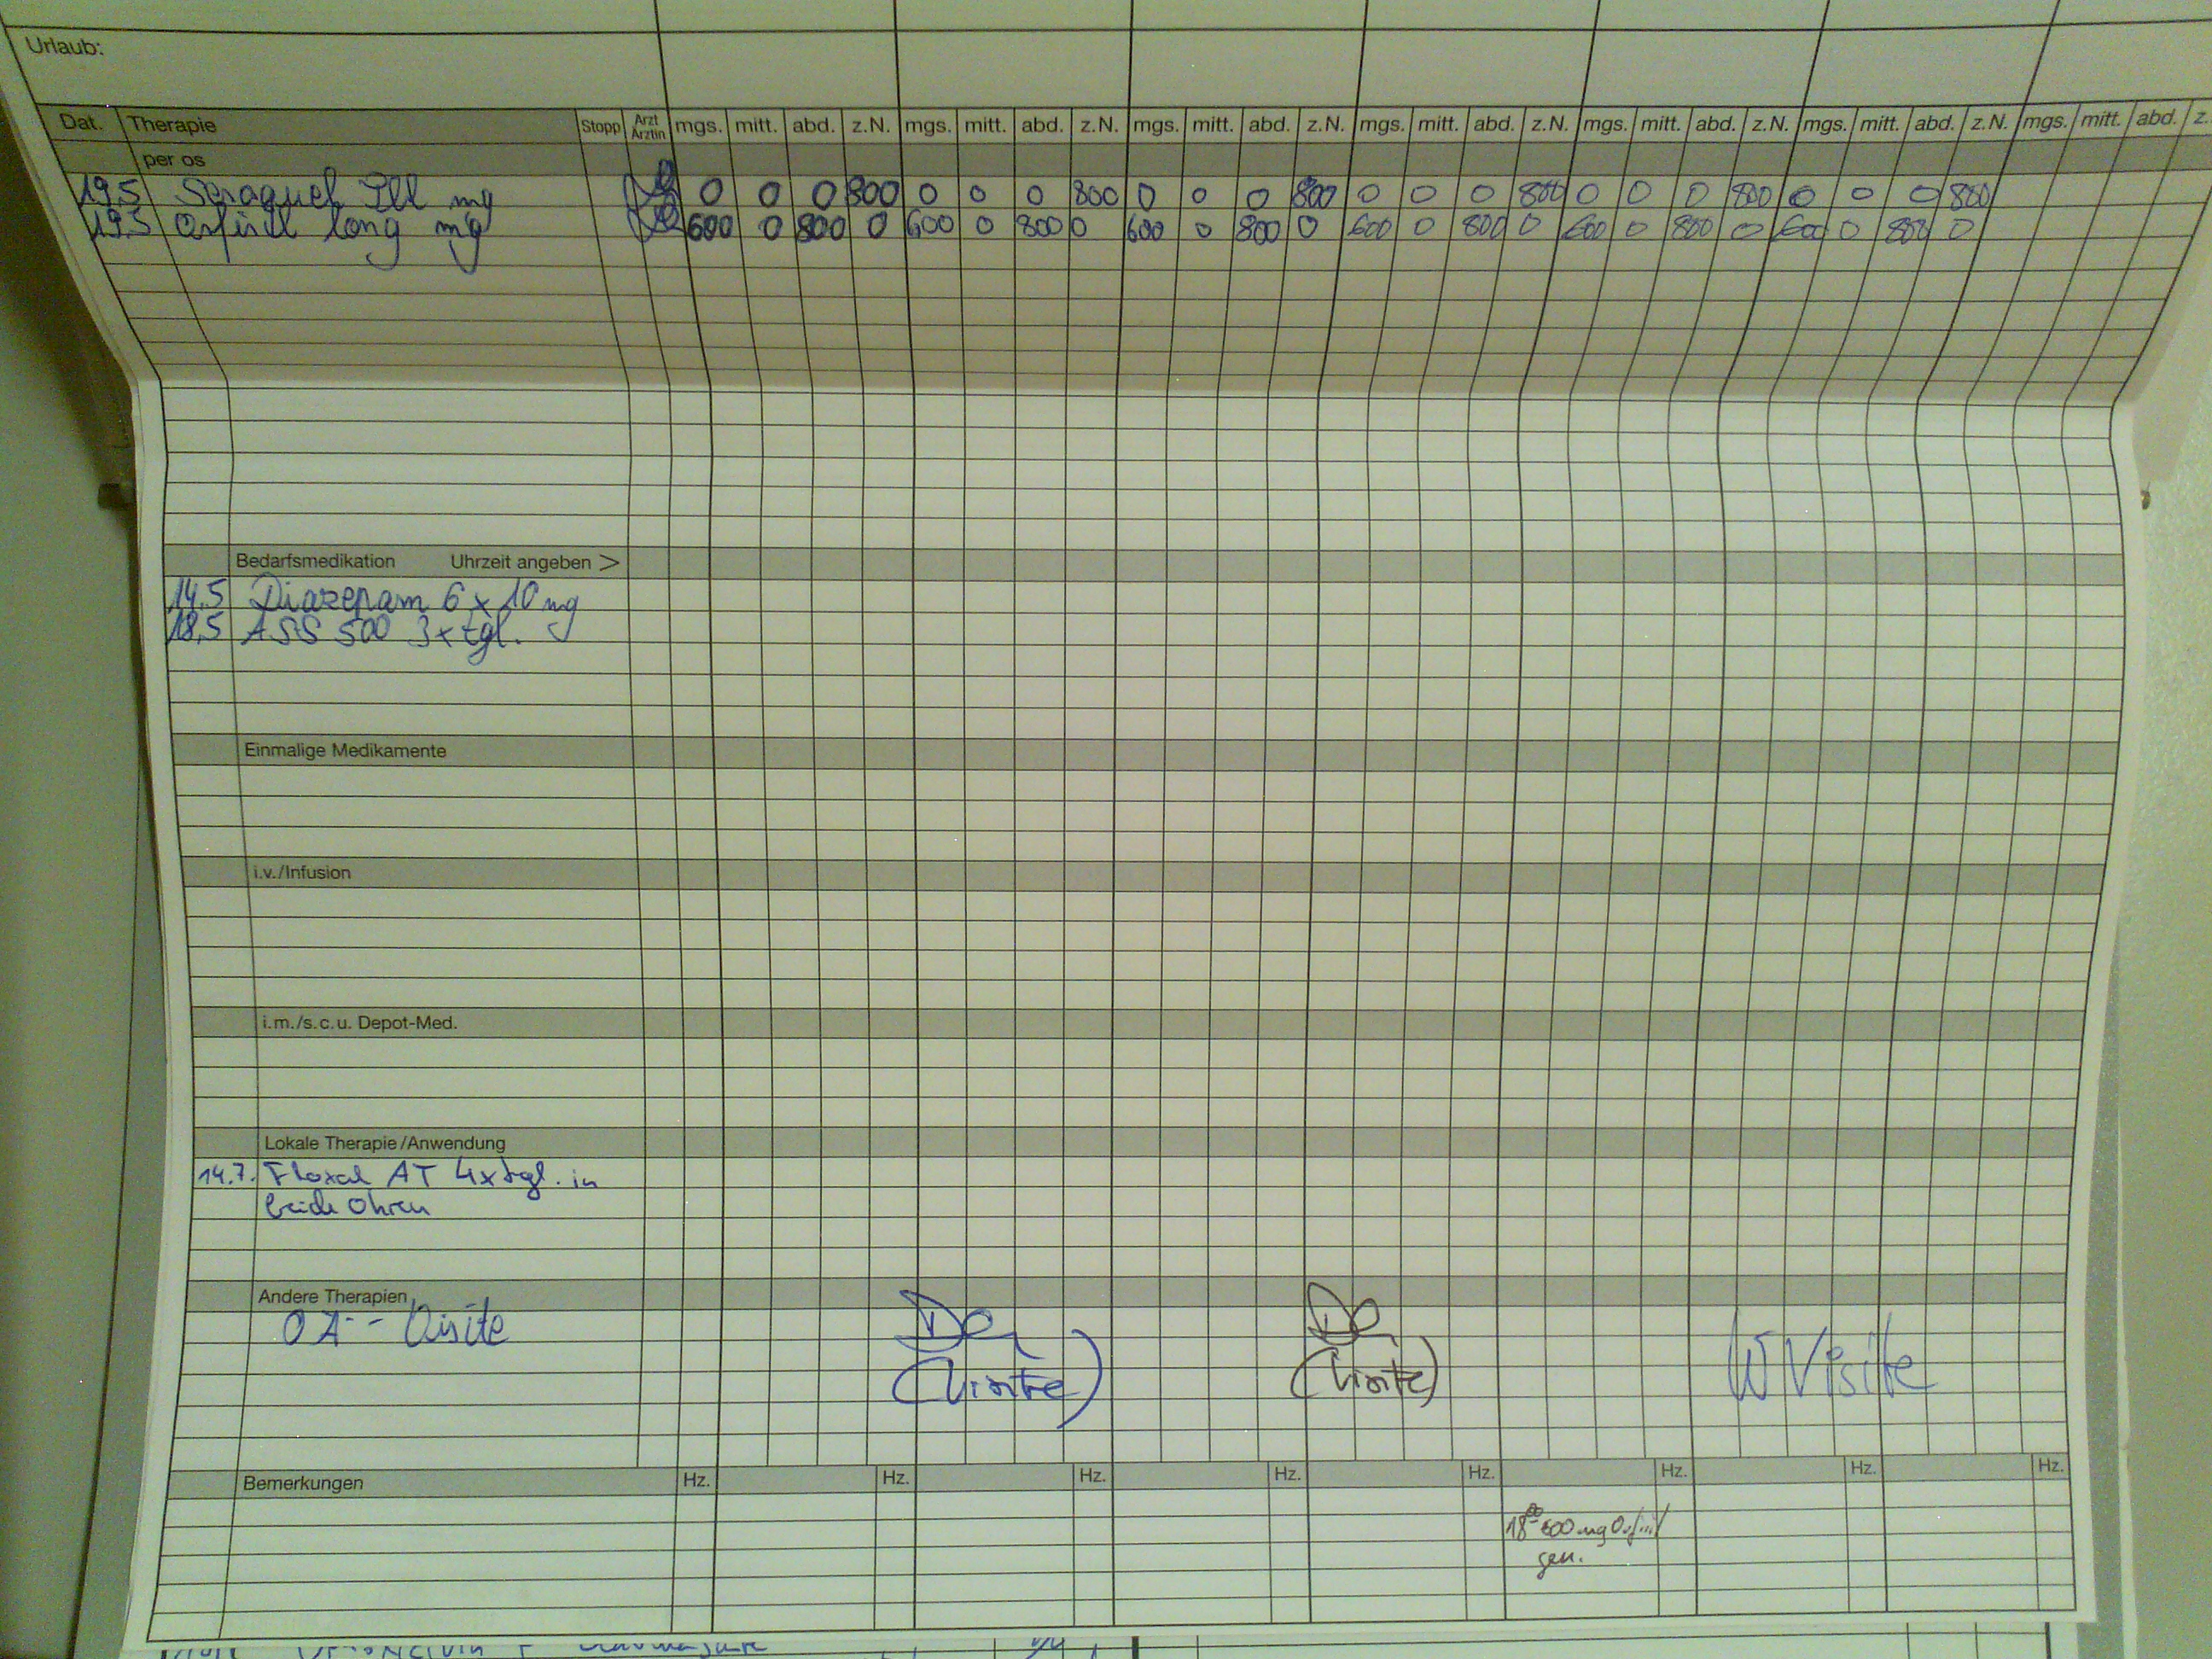 Urlaub:
Dat. Therapie Stopp Arzt Ärztin mgs. mitt. abd. z.N. mgs. mitt. abd. z.N. mgs. mitt. abd. z.N. mgs. mitt. abd. z.N. mgs. mitt. abd. z.N. mgs. mitt. abd. z.N. mgs. mitt. abd. z.
per os
19.5 mg 0 0 0 800 0 0 0 800 0 0 0 800 0 0 0 800 0 0 0 800 0 0 0 800
19.5 Orfiril long mg 600 0 800 0 600 0 800 0 600 0 800 0 600 0 800 0 600 0 800 0 600 0 800 0
Bedarfsmedikation Uhrzeit angeben >
14.5 Diazepam 6 x 10 mg
18.5 ASS 500 3x tgl.
Einmalige Medikamente
i.v./Infusion
i.m./s.c.u. Depot-Med.
Lokale Therapie/Anwendung
14.7. Floxal AT 4x tgl. in
beide Ohren
Andere Therapien
OA - Visite
(Visite)
(Visite)
W Visite
Bemerkungen Hz. Hz. Hz. Hz. Hz. Hz. Hz. Hz.
18 00 600 mg Orfiril
gen.